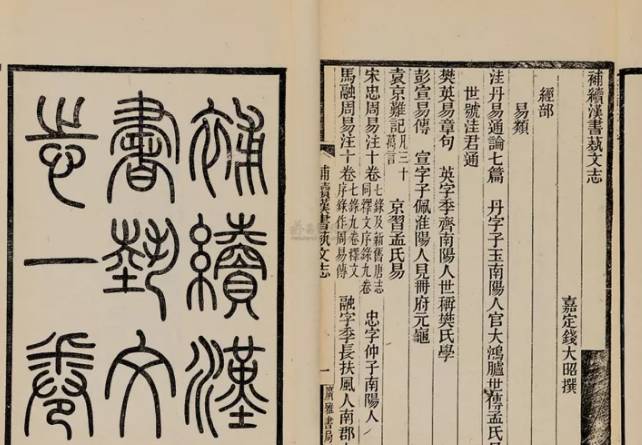 補續漢書蓺文志
嘉定錢大昭撰
經部
易類
洼丹易通論七篇 丹字子玉南陽人官大鴻臚世傳孟氏
世號洼君通
樊英易章句 英字季齊南陽人世稱樊氏學
彭宣易傳 宣字子佩淮陽人見冊府元龜
袁京難記凡三十萬言 京習孟氏易
宋忠周易注十卷七錄及新舊唐志同釋文序錄九卷 忠字仲子南陽人
馬融周易注十卷七錄九卷釋文序錄作周易傳 融字季長扶風人南郡
補續漢書蓺文志 一 廣雅書局
補續漢
書埶文
志一卷